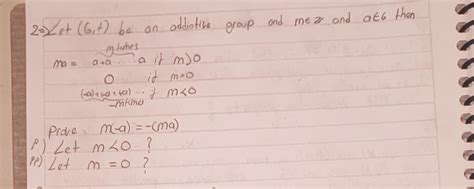 2=> Let (G,+) be an addotive group and m∈z and a∈G then
m times
ma = a+a ... a if m>0
0 if m=0
(-a)+(-a)+(-a)... if m<0
-m times
Prove: m(-a) = -(ma)
P) Let m<0 ?
PP) Let m=0 ?